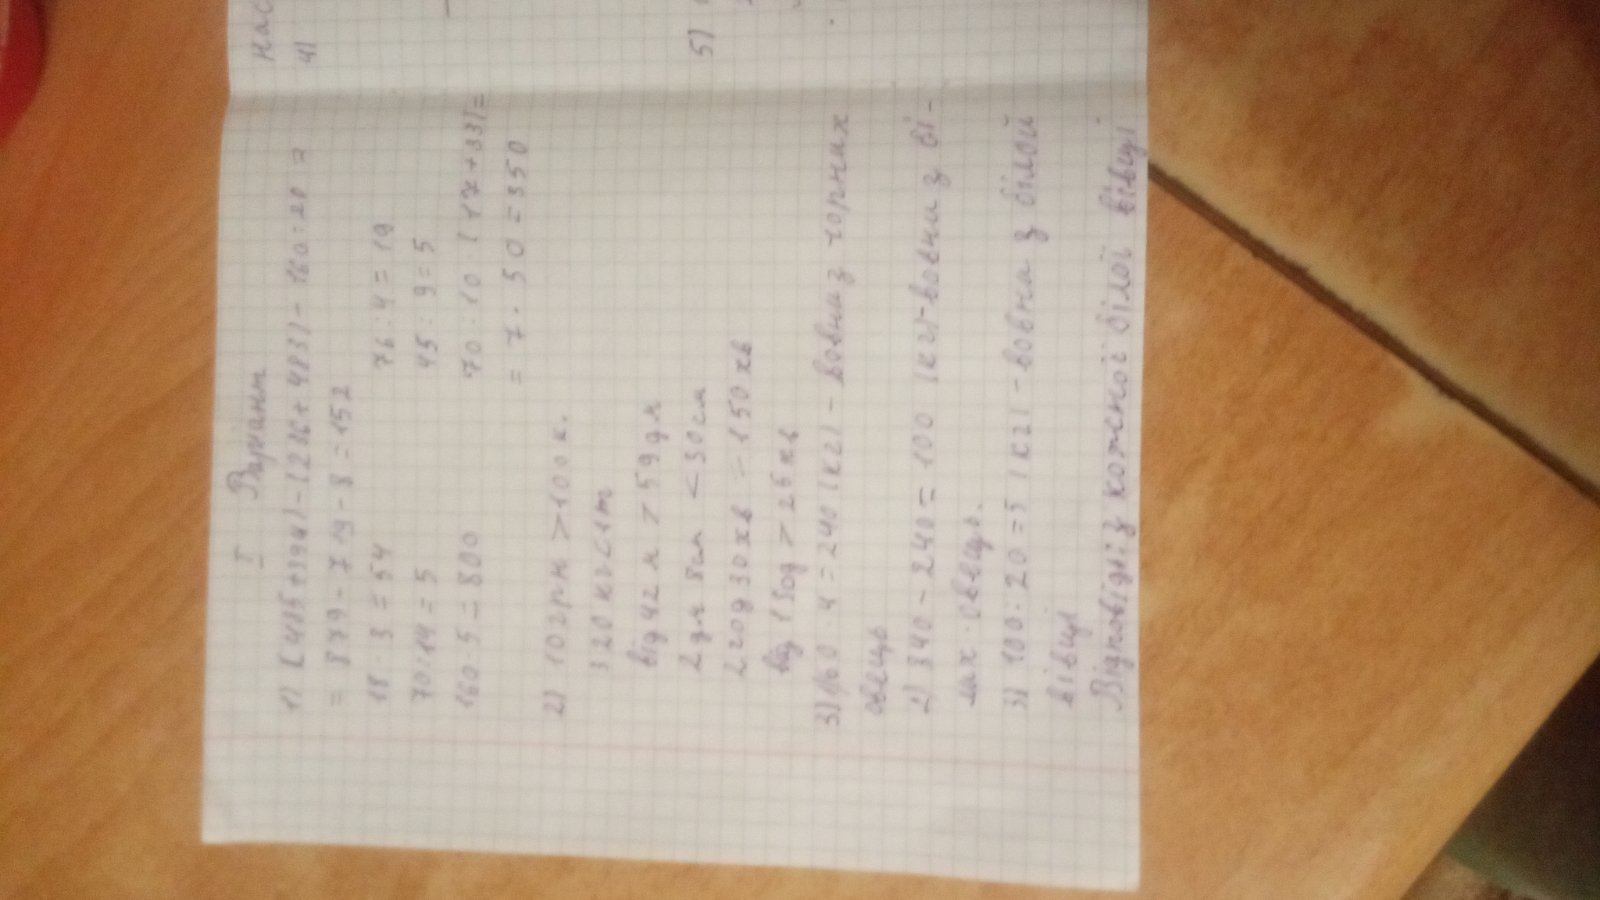 I Варіант
1) (485+394)-(236+483)-160:20=
=879-719-8=152
18·3=54 76:4=19
70:14=5 45:9=5
160·5=800 70:10·(17+33)=
=7·50=350
2) 102грн>100к.
320кг<1т
від 42м>59дм
2дм 8см<30см
2год30хв=150хв
>25хв
3) 60·4=240(кг)-вовниз чорних
овець
2) 340-240=100(кг)-вовни з бі-
лих овець.
3) 100:20=5(кг)-вовна з білой
вівці
Відповідь:з кожної білої вівці
4)
5)